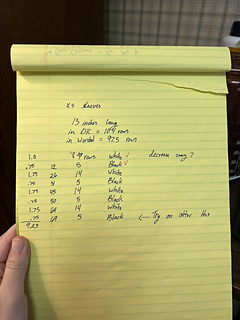 XS sleeves
13 inches long
in DK = 104 rows
in worsted = 97.5 rows
1.0 9 rows white ✓ decrease every 7
.75 12 5 Black ✓
1.75 26 14 white
.75 31 5 Black
1.75 45 14 white
.75 50 5 Black
1.75 64 14 white
.75 69 5 Black ← Try on after this
9.25